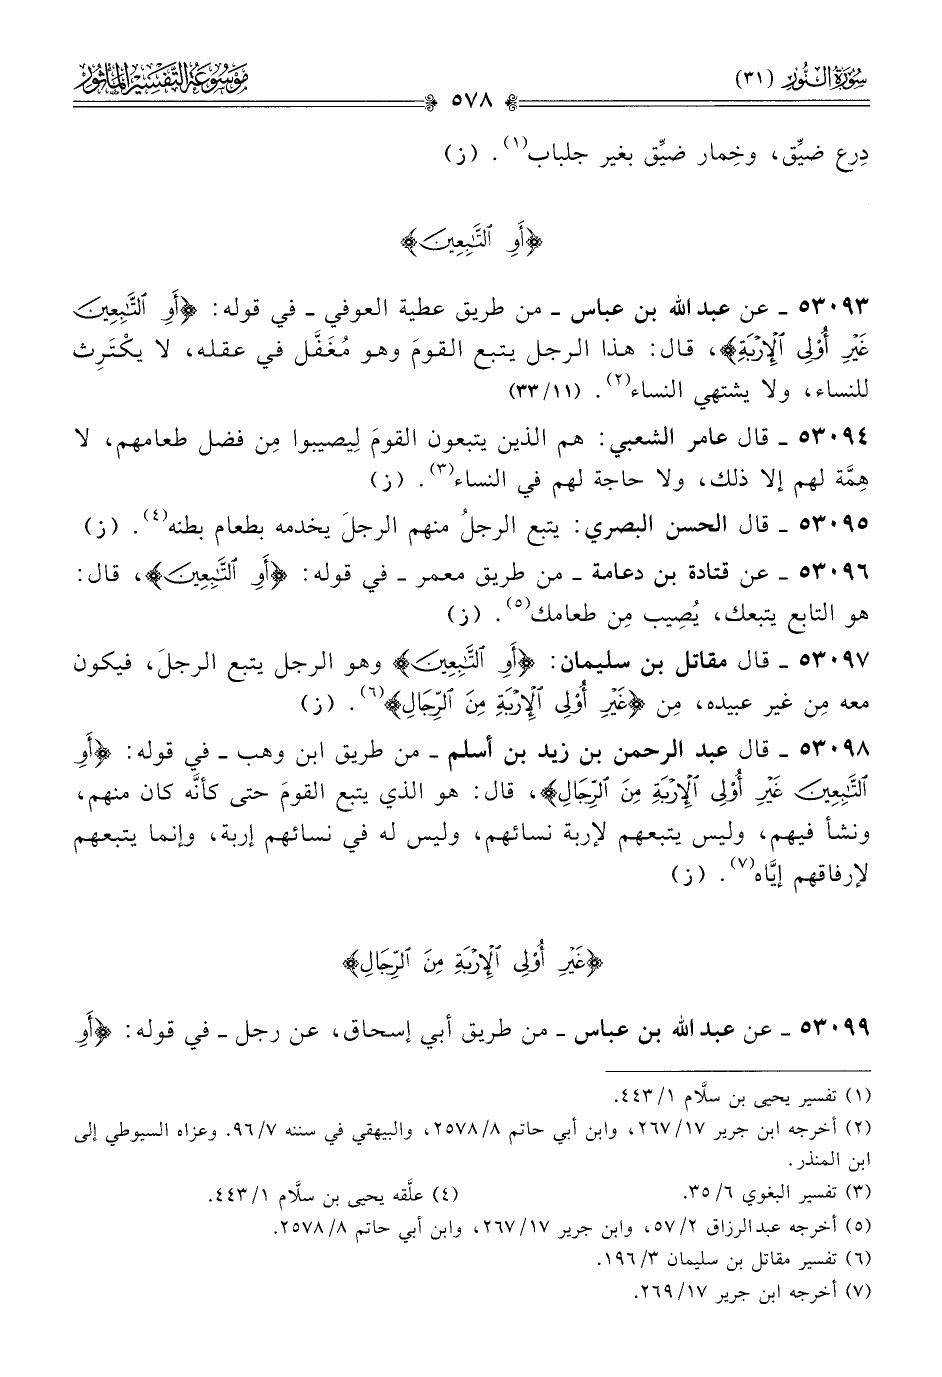 سُورَةُ النُّورِ (٣١)
موسوعة التفسير المأثور
٥٧٨
دِرع ضيِّق، وخِمار ضيِّق بغير جلباب(١). (ز)
﴿أَوِ ٱلتَّٰبِعِينَ﴾
٥٣٠٩٣ ـ عن عبد الله بن عباس ـ من طريق عطية العوفي ـ في قوله: ﴿أَوِ ٱلتَّٰبِعِينَ
غَيْرِ أُوْلِى ٱلْإِرْبَةِ﴾، قال: هذا الرجل يتبع القومَ وهو مُغَفَّل في عقله، لا يكْتَرِث
للنساء، ولا يشتهي النساء(٢). (١١/٣٣)
٥٣٠٩٤ ـ قال عامر الشعبي: هم الذين يتبعون القومَ لِيصيبوا مِن فضل طعامهم، لا
هِمَّة لهم إلا ذلك، ولا حاجة لهم في النساء(٣). (ز)
٥٣٠٩٥ ـ قال الحسن البصري: يتبع الرجلُ منهم الرجلَ يخدمه بطعام بطنه(٤). (ز)
٥٣٠٩٦ ـ عن قتادة بن دعامة ـ من طريق معمر ـ في قوله: ﴿أَوِ ٱلتَّٰبِعِينَ﴾، قال:
هو التابع يتبعك، يُصِيب مِن طعامك(٥). (ز)
٥٣٠٩٧ ـ قال مقاتل بن سليمان: ﴿أَوِ ٱلتَّٰبِعِينَ﴾ وهو الرجل يتبع الرجلَ، فيكون
معه مِن غير عبيده، مِن ﴿غَيْرِ أُوْلِى ٱلْإِرْبَةِ مِنَ ٱلرِّجَالِ﴾(٦). (ز)
٥٣٠٩٨ ـ قال عبد الرحمن بن زيد بن أسلم ـ من طريق ابن وهب ـ في قوله: ﴿أَوِ
ٱلتَّٰبِعِينَ غَيْرِ أُوْلِى ٱلْإِرْبَةِ مِنَ ٱلرِّجَالِ﴾، قال: هو الذي يتبع القومَ حتى كأنَّه كان منهم،
ونشأ فيهم، وليس يتبعهم لإربة نسائهم، وليس له في نسائهم إربة، وإنما يتبعهم
لإرفاقهم إيَّاه(٧). (ز)
﴿غَيْرِ أُوْلِى ٱلْإِرْبَةِ مِنَ ٱلرِّجَالِ﴾
٥٣٠٩٩ ـ عن عبد الله بن عباس ـ من طريق أبي إسحاق، عن رجل ـ في قوله: ﴿أَوِ
(١) تفسير يحيى بن سلَّام ١/ ٤٤٣.
(٢) أخرجه ابن جرير ١٧/ ٢٦٧، وابن أبي حاتم ٨/ ٢٥٧٨، والبيهقي في سننه ٧/ ٩٦. وعزاه السيوطي إلى
ابن المنذر.
(٣) تفسير البغوي ٦/ ٣٥.
(٤) علَّقه يحيى بن سلَّام ١/ ٤٤٣.
(٥) أخرجه عبد الرزاق ٢/ ٥٧، وابن جرير ١٧/ ٢٦٧، وابن أبي حاتم ٨/ ٢٥٧٨.
(٦) تفسير مقاتل بن سليمان ٣/ ١٩٦.
(٧) أخرجه ابن جرير ١٧/ ٢٦٩.